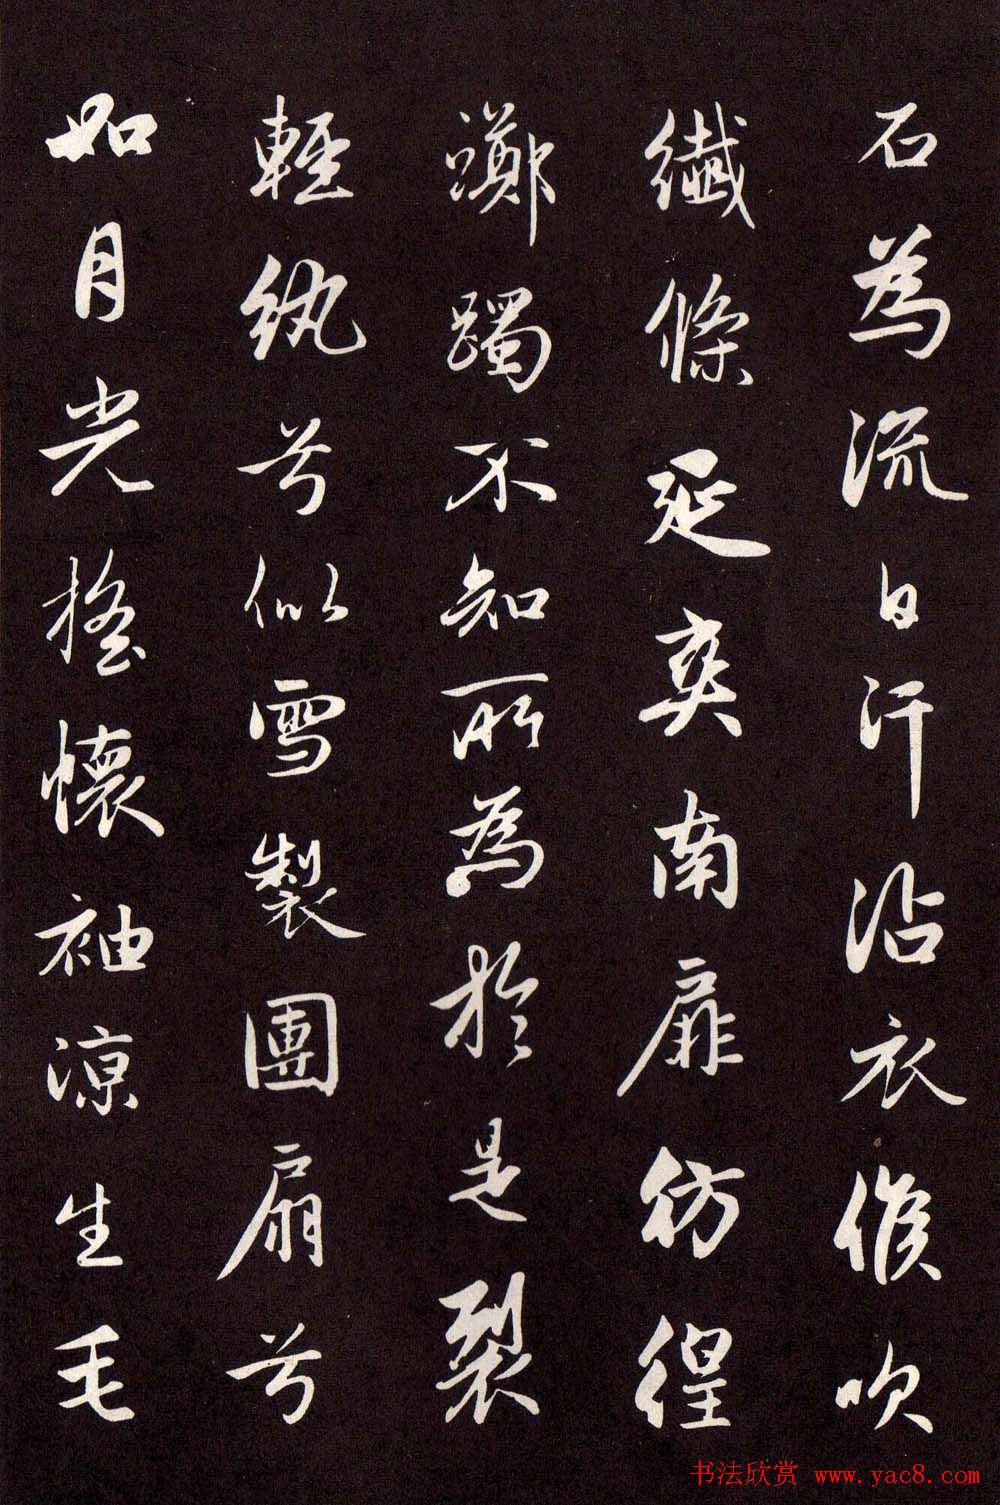 石為流日汗沾衣候吹
纖條延爽南扉彷徨
躑躅不知所為於是裂
輕紈兮似雪製團扇兮
如月光搖懷袖涼生毛
书法欣赏 www.yac8.com